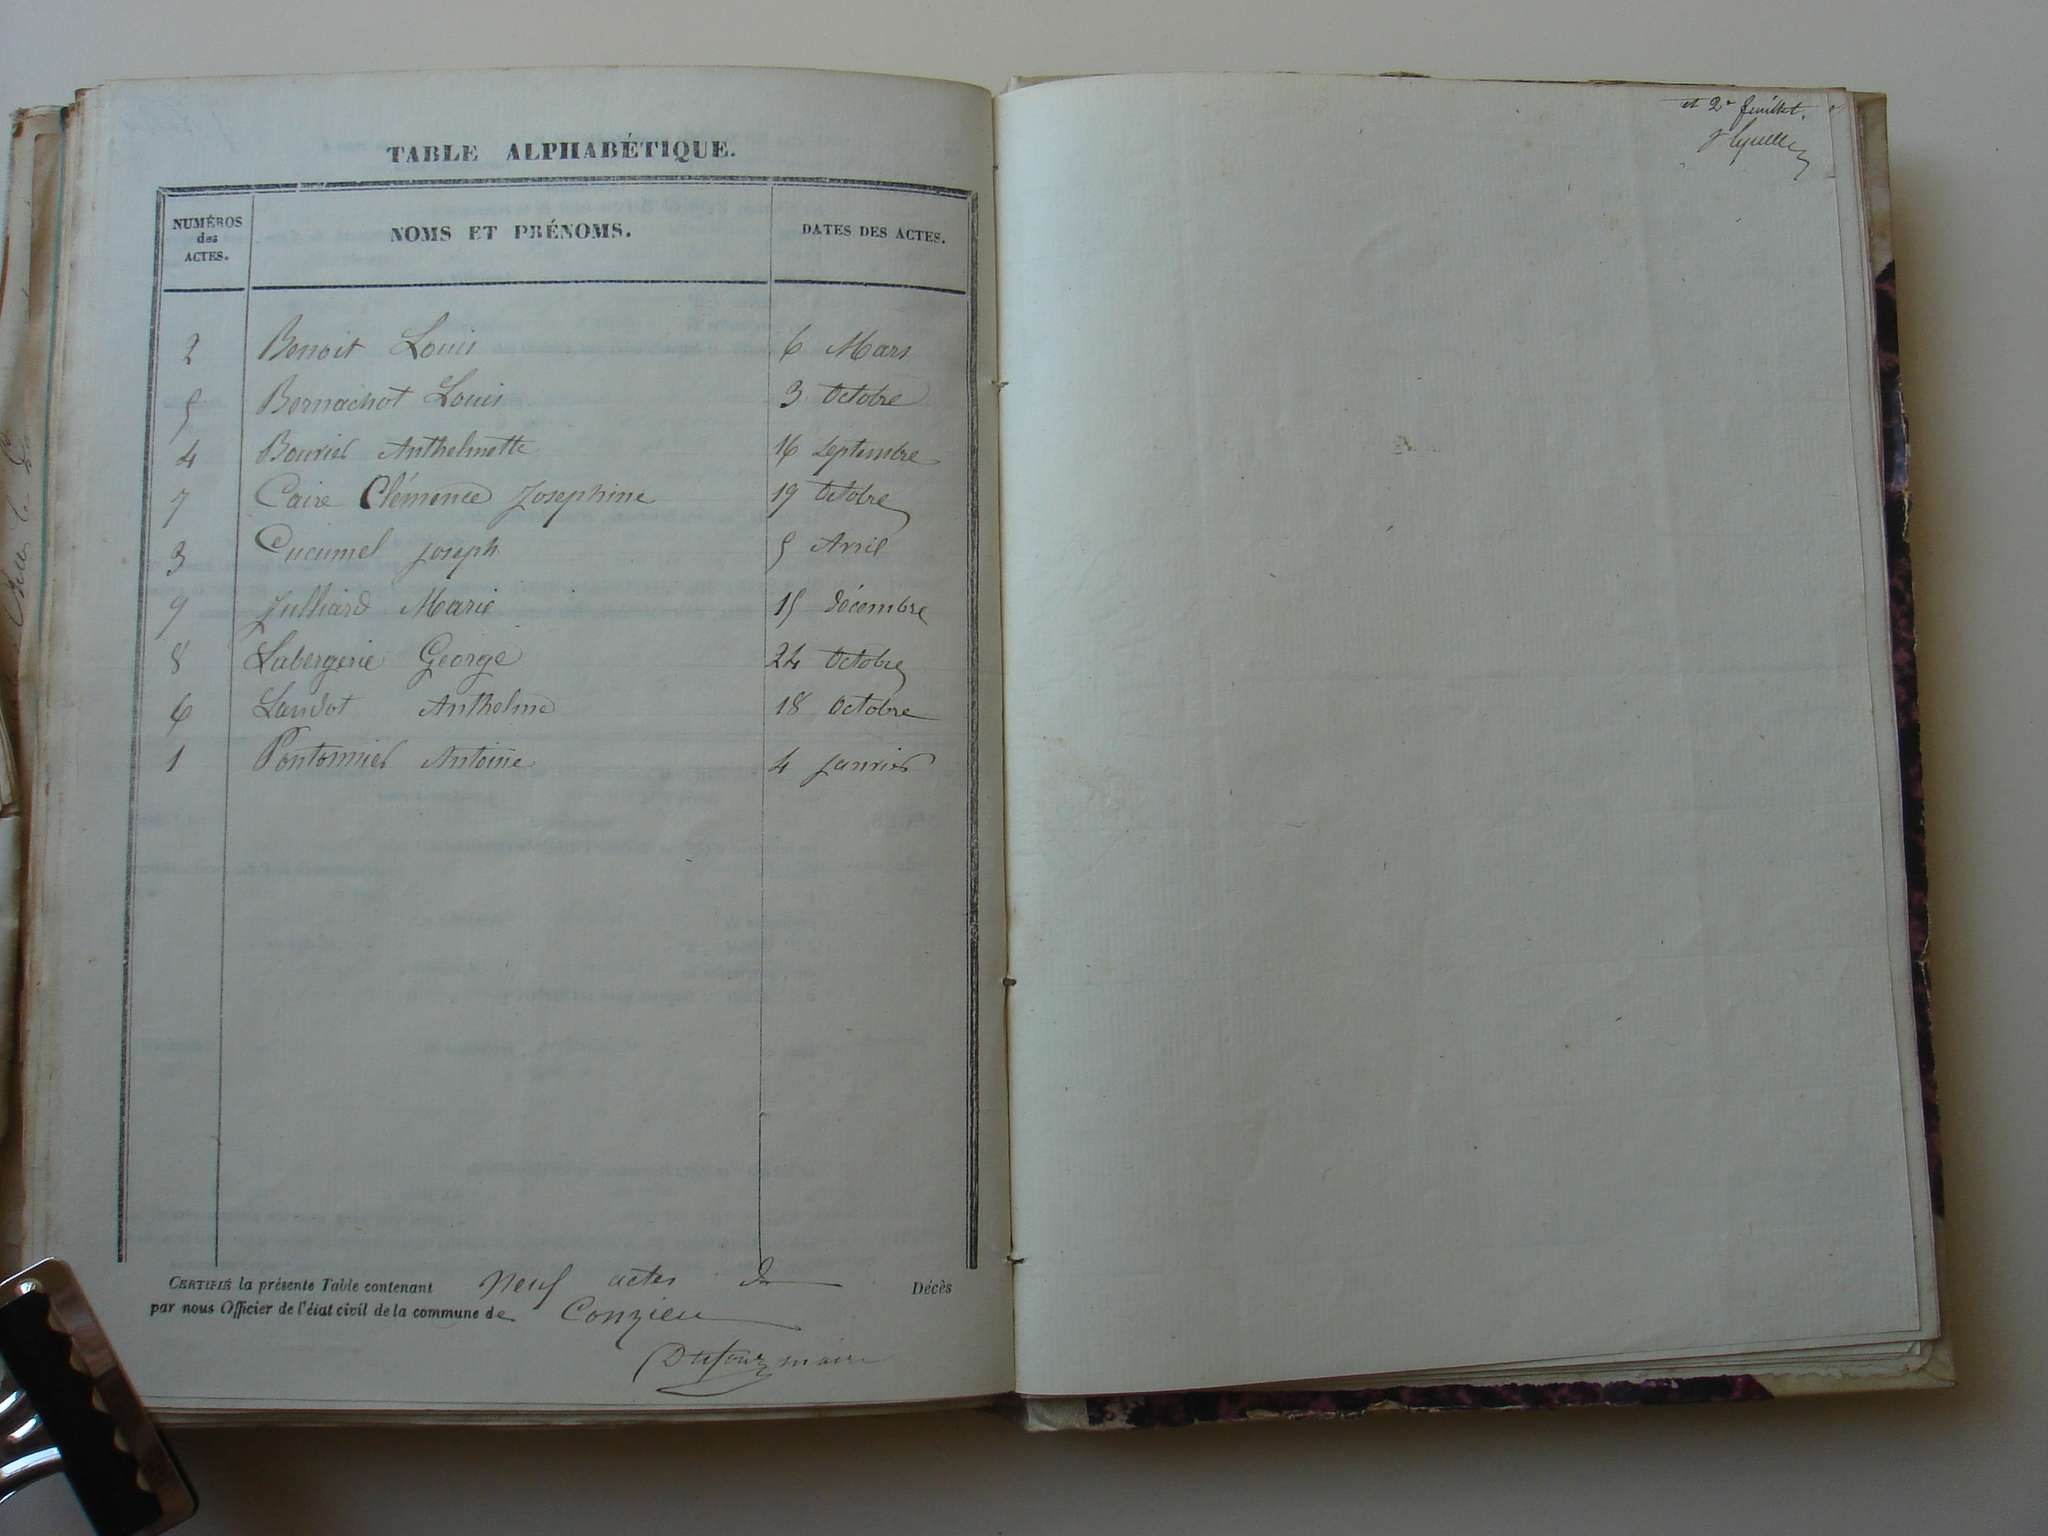 TABLE ALPHABÉTIQUE.
NUMÉROS des ACTES. NOMS ET PRÉNOMS. DATES DES ACTES.
2 Benoit Louis 6 Mars
5 Bernachot Louis 3 Octobre
4 Bouvier Anthelmette 16 Septembre
7 Caire Clémence Josephine 19 Octobre
3 Cucumel Joseph 5 Avril
9 Julliard Marie 15 décembre
8 Labergerie George 24 Octobre
6 Landot Anthelme 18 Octobre
1 Pontonnier Antoine 4 Janvier
CERTIFIÉ la présente Table contenant Neuf actes de Décès
par nous Officier de l'état civil de la commune de Conzieu
Dufour maire
et 2e feuillet.